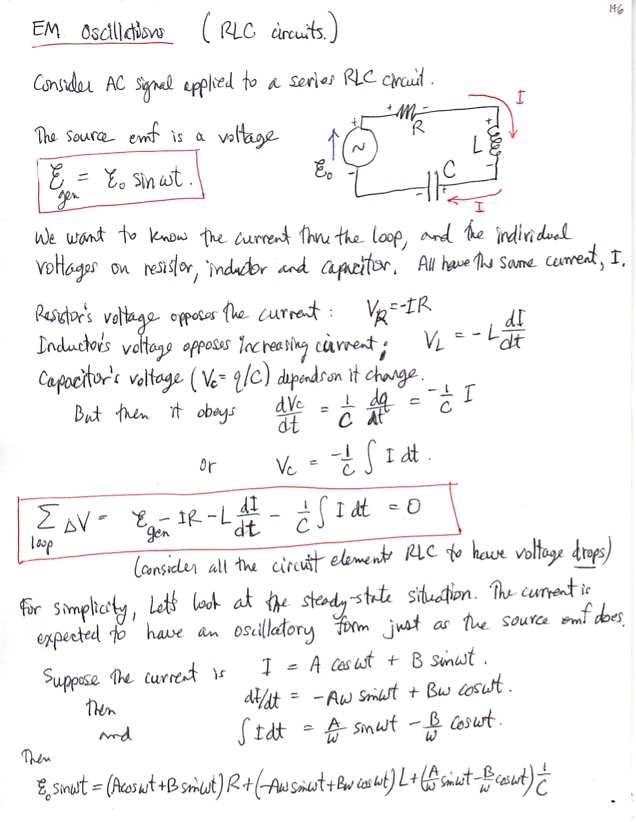 196
EM Oscillations (RLC circuits.)
Consider AC signal applied to a series RLC circuit.
The source emf is a voltage
ℰgen = ℰ₀ sin ωt.
I
+ - R
+ L -
+ ~ -
ℰ₀
C +
I
We want to know the current thru the loop, and the individual
voltages on resistor, inductor and capacitor. All have the same current, I.
Resistor's voltage opposes the current: V_R = -IR
Inductor's voltage opposes increasing current; V_L = -L dI/dt
Capacitor's voltage (Vc = q/C) depends on it charge.
But then it obeys dVc/dt = 1/C dq/dt = -1/C I
or Vc = -1/C ∫ I dt.
∑loop ΔV = ℰgen - IR - L dI/dt - 1/C ∫ I dt = 0
(consider all the circuit elements RLC to have voltage drops)
For simplicity, Let's look at the steady-state situation. The current is
expected to have an oscillatory form just as the source emf does.
Suppose the current is I = A cos ωt + B sin ωt.
then dI/dt = -Aω sin ωt + Bω cos ωt.
and ∫ I dt = A/ω sin ωt - B/ω cos ωt.
Then
ℰ₀ sin ωt = (A cos ωt + B sin ωt) R + (-Aω sin ωt + Bω cos ωt) L + (A/ω sin ωt - B/ω cos ωt) 1/C